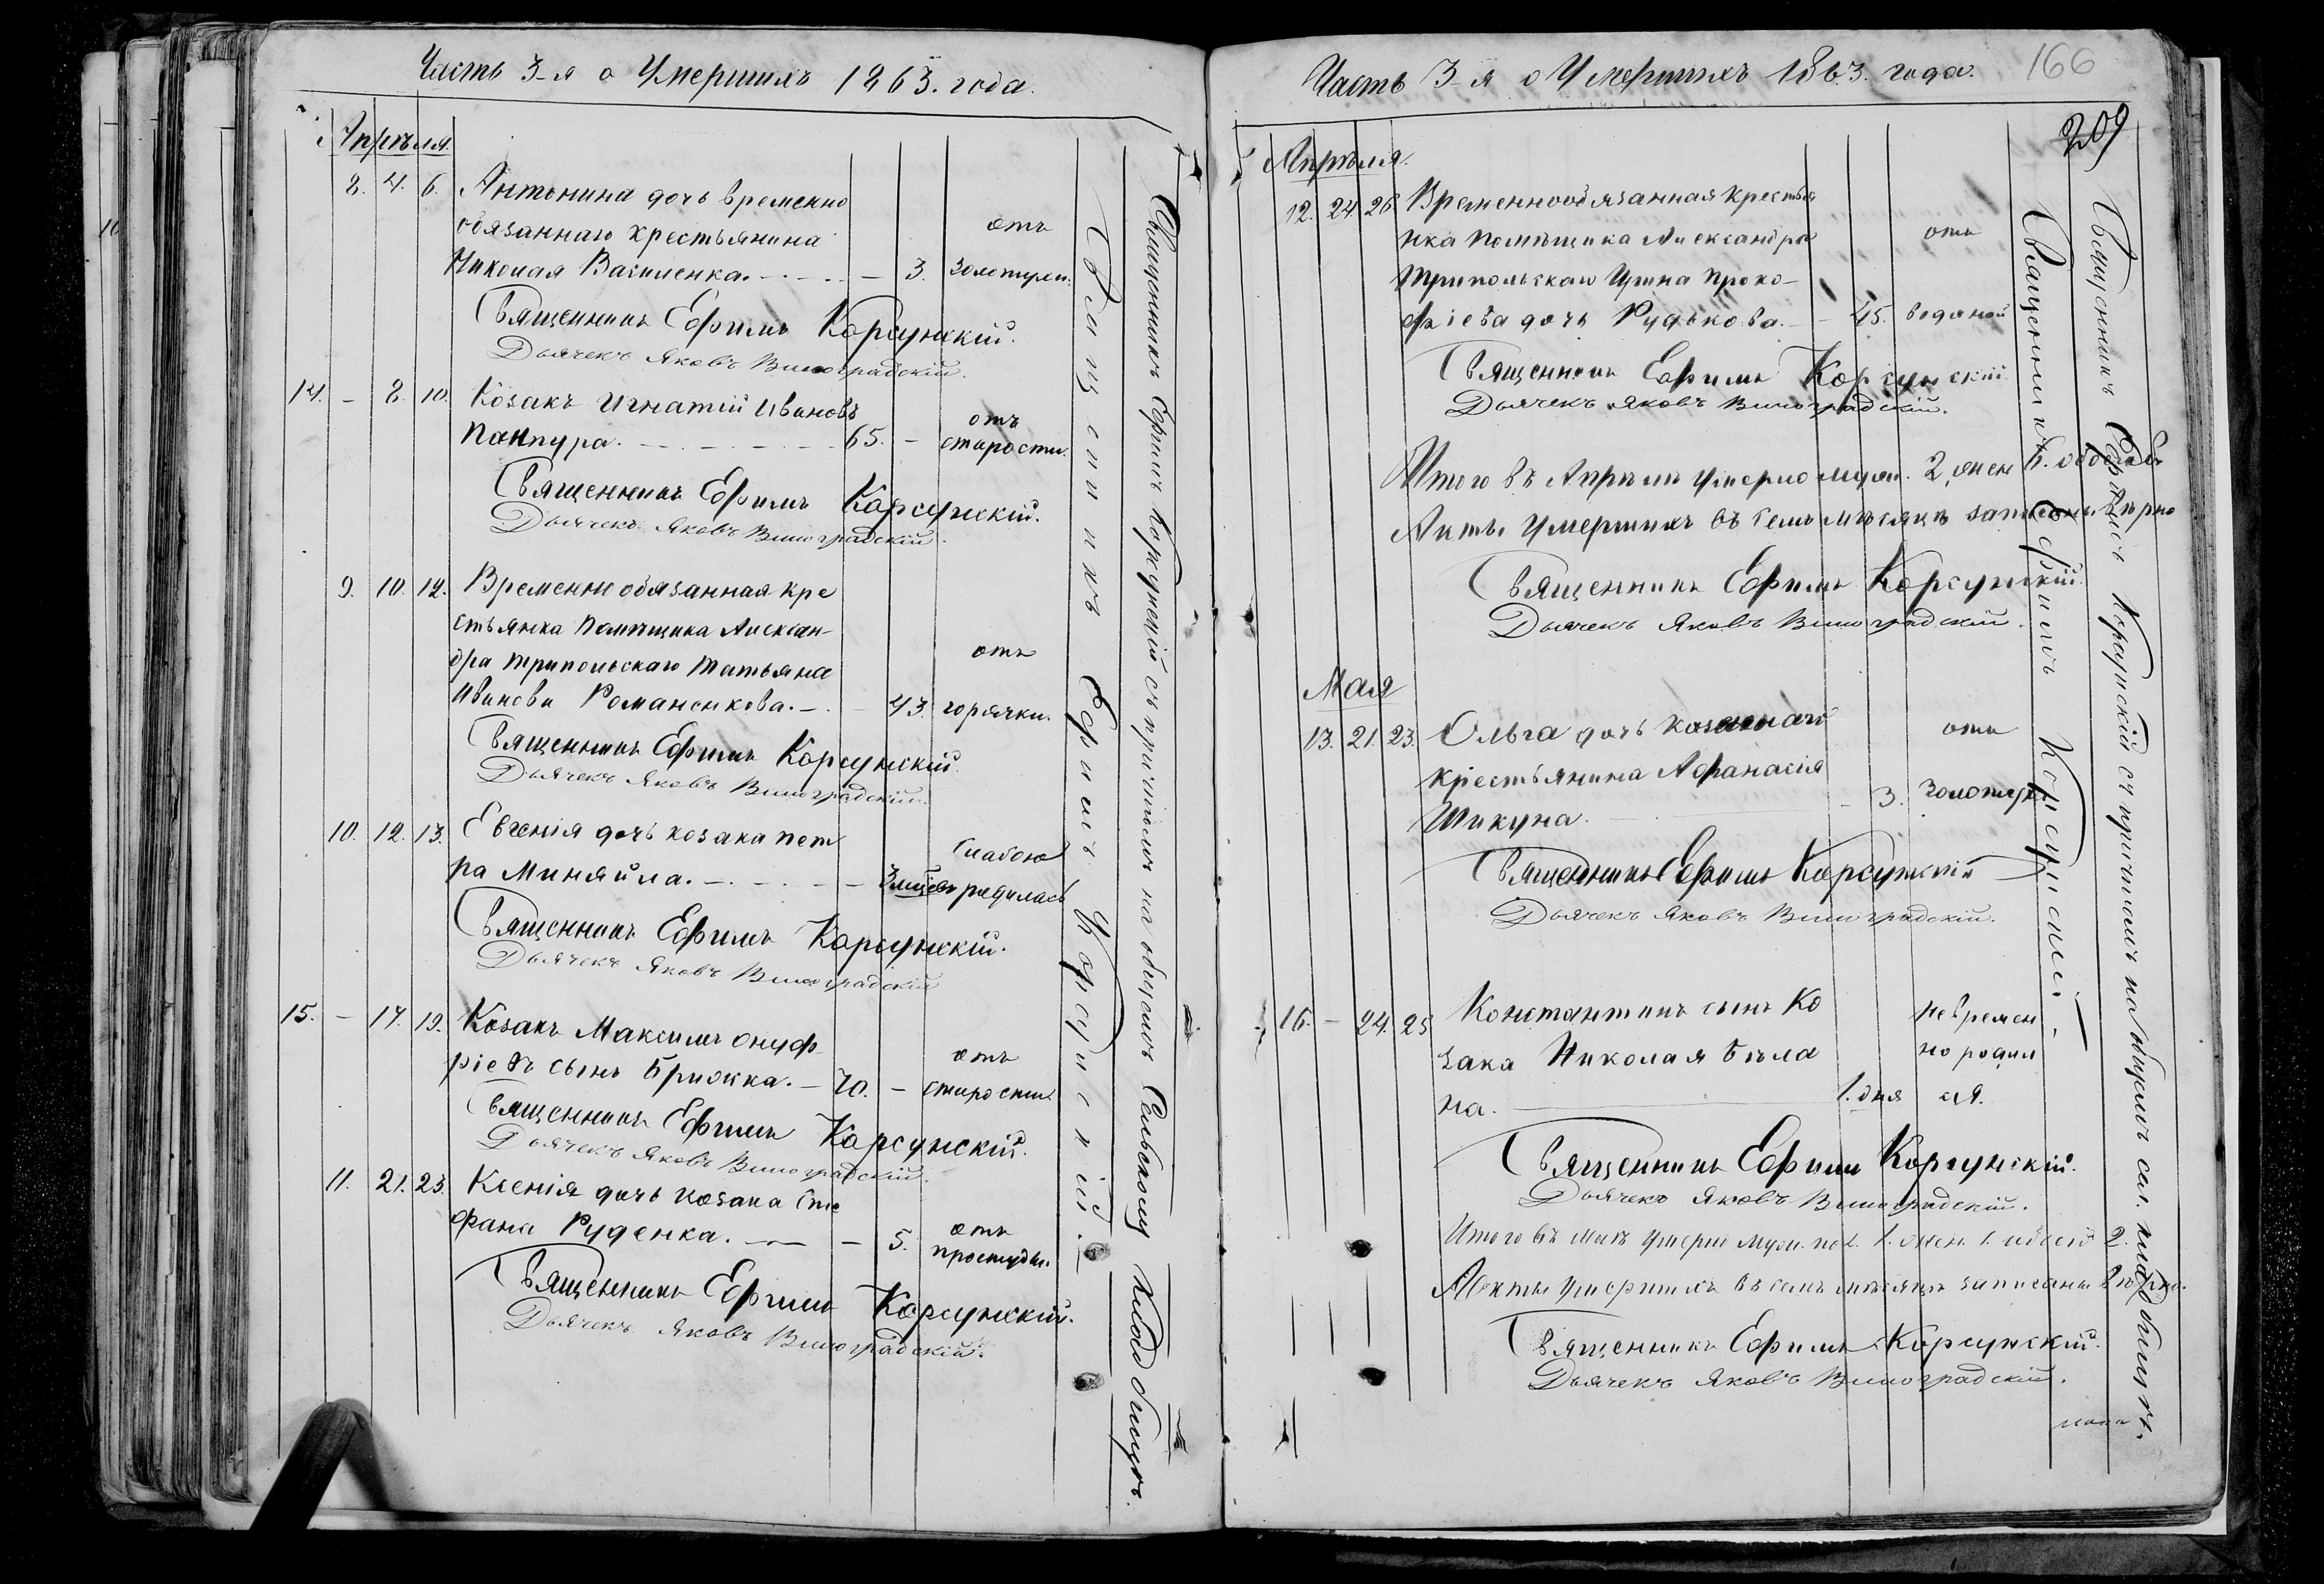 Часть 3-я о Умершихъ 1863. года.
Апрѣля
8. 4. 6. Антонина дочь временно
обязаннаго крестьянина отъ
Николая Василенка. — 3. золотухи.
Священникъ Ефимъ Корсунскій.
Дьячекъ Яковъ Виноградскій.
14. – 8. 10. Козакъ Игнатій Ивановъ отъ
Панпура. — 65. – старости.
Священникъ Ефимъ Корсунскій.
Дьячекъ Яковъ Виноградскій.
9. 10. 12. Временно обязанная кре
стьянка Помѣщика Алексан-
дра Трипольскаго Татьяна отъ
Иванова Романенкова. — 43. горячки.
Священникъ Ефимъ Корсунскій.
Дьячекъ Яковъ Виноградскій.
10. 12. 13. Евгенія дочь козака Пет слабою
ра Миняйла. — родилась
Священникъ Ефимъ Корсунскій.
Дьячекъ Яковъ Виноградскій
15. – 17. 19. Козакъ Максимъ Онуф- отъ
ріевъ сынъ Брижка. — 70. – старости
Священникъ Ефимъ Корсунскій.
Дьячекъ Яковъ Виноградскій.
11. 21. 23. Ксенія дочь козака Сте
фана Руденка. — 5. отъ
простуды.
Священникъ Ефимъ Корсунскій.
Дьячекъ Яковъ Виноградскій.
Священникъ Ефимъ Корсунскій.
Священникъ Ефимъ Корсунскій съ причтомъ на общемъ Сельскому Кладбищѣ.
Часть 3-я о Умершихъ 1863. года.
166
209
Апрѣля.
12. 24. 26. Временнообязанная крестья
нка помѣщика Александра отъ
Трипольскаго Ирина Проко-
фіева дочь Рудькова. — 45. водяной
Священникъ Ефимъ Корсунскій
Дьячекъ Яковъ Виноградскій.
Итого въ Апрѣлѣ умерло муж. 2, жен 6. обоего 8
Акты Умершихъ въ семъ мѣсяцѣ записаны вѣрно
Священникъ Ефимъ Корсунскій.
Дьячекъ Яковъ Виноградскій.
Мая
13. 21. 23. Ольга дочь казеннаго отъ
крестьянина Афанасія
Шикуна. — 3. золотухи
Священникъ Ефимъ Корсунскій
Дьячекъ Яковъ Виноградскій.
16. – 24. 25 Константинъ сынъ Ко невремен
зака Николая Бѣла но родил
на. — 1. дня ся.
Священникъ Ефимъ Корсунскій.
Дьячекъ Яковъ Виноградскій.
Итого въ Маѣ умерло муж. пол. 1. жен. 1. обоего 2.
Акты умершихъ въ семъ мѣсяцѣ записаны вѣрно.
Священникъ Ефимъ Корсунскій.
Дьячекъ Яковъ Виноградскій.
Священникъ Ефимъ Корсунскій
Священникъ Ефимъ Корсунскій съ причтомъ на общемъ сел. кладбищѣ.